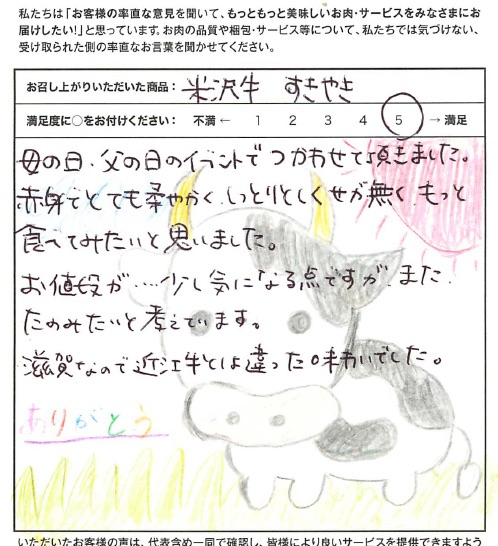 私たちは「お客様の率直な意見を聞いて、もっともっと美味しいお肉・サービスをみなさまにお
届けしたい!」と思っています。お肉の品質や梱包・サービス等について、私たちでは気づけない、
受け取られた側の率直なお言葉を聞かせてください。
お召し上がりいただいた商品： 米沢牛 すきやき
満足度に○をお付けください： 不満 ← 1 2 3 4 5 → 満足
母の日・父の日のイベントでつかわせて頂きました。
赤身でとても柔やかく、しっとりとしくせが無く、もっと
食べてみたいと思いました。
お値段が….少し気になる点ですが、また、
たのみたいと考えています。
滋賀なので近江牛とは違った味わいでした。
ありがとう
いただいたお客様の声は、代表含め一同で確認し、皆様により良いサービスを提供できますよう